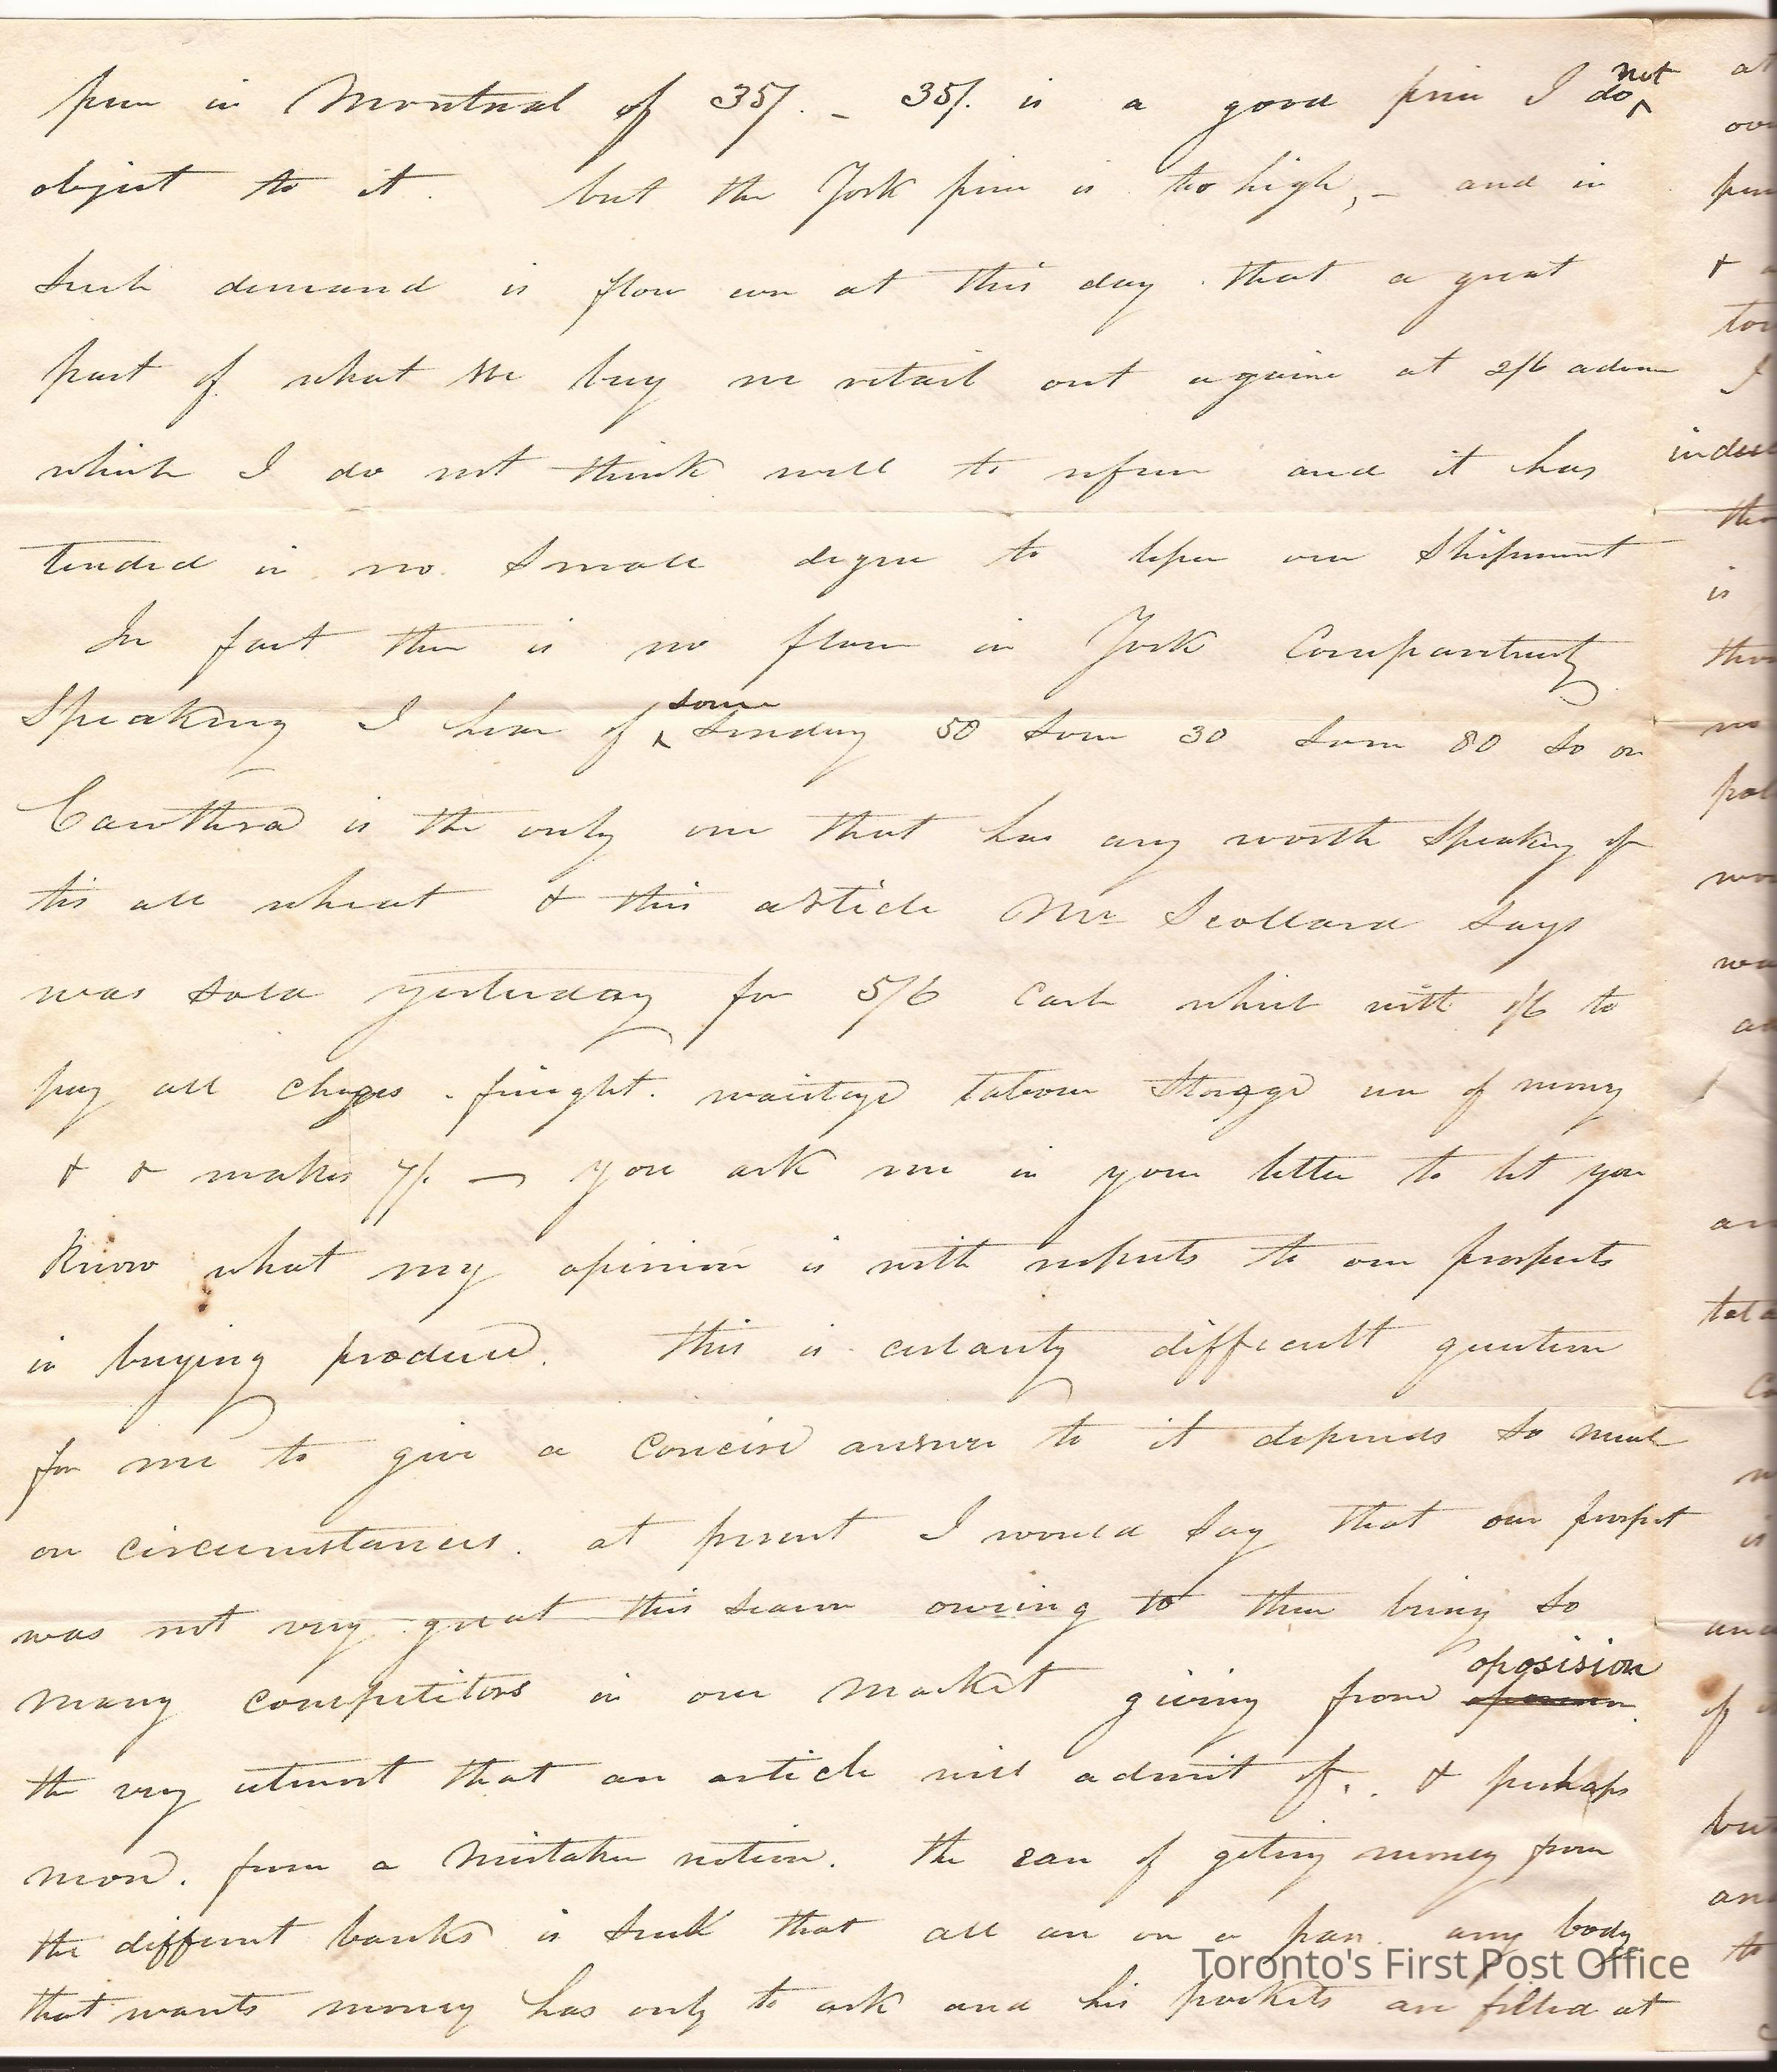 price in Montreal of 35/. - 35/. is a good price I do not
object to it. but the York price is too high, - and in
such demand is flour even at this day that a great
part of what we buy we retail out againe at 2/6 advance
which I do not think well to refuse and it has
tended in no small degree to lessen our Shipment
In fact there is no flour in York Comparitively
Speaking I hear of some Sending 50 some 30 some 80 so on
Cawthra is the only one that has any worth Speaking of
tis all wheat & this article Mr Scollard says
was sold yesterday for 5/6 Cash which with 1/6 to
pay all charges . freight . wastage labour Storage use of money
& & makes 7/. — you ask me in your letter to let you
Know what my opinion is with respects to our prospects
in buying produce. this is certainly difficult question
for me to give a concise answer to it depends so much
on circumstances. at present I would say that our prospect
was not very great this season owing to there being so
many competitors in our market giving from oposision
the very utmost that an article will admit of. & perhaps
more. from a mistaken notion. the ease of geting money from
the different banks is such that all are on a par. any body
that wants money has only to ask and his pockets are filled at
Toronto's First Post Office